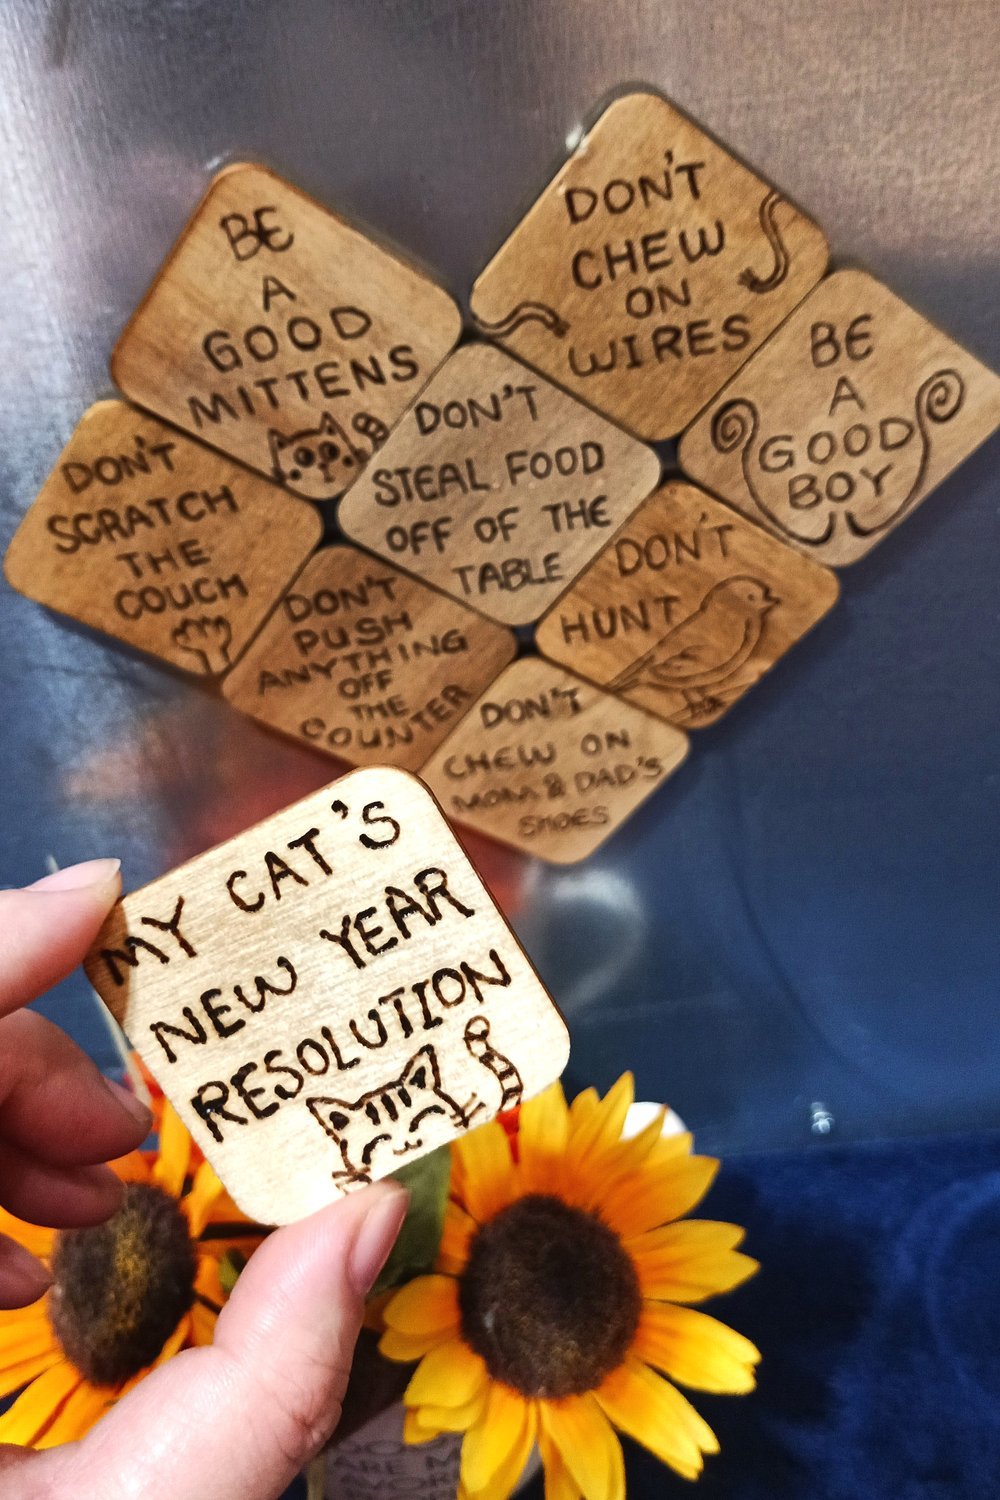 BE
A
GOOD
MITTENS
DON'T
CHEW
ON
WIRES
BE
A
GOOD
BOY
DON'T
STEAL FOOD
OFF OF THE
TABLE
DON'T
SCRATCH
THE
COUCH
DON'T
HUNT
DON'T
PUSH
ANYTHING
OFF
THE
COUNTER
DON'T
CHEW ON
MOM & DAD'S
SHOES
MY CAT'S
NEW YEAR
RESOLUTION
ARE